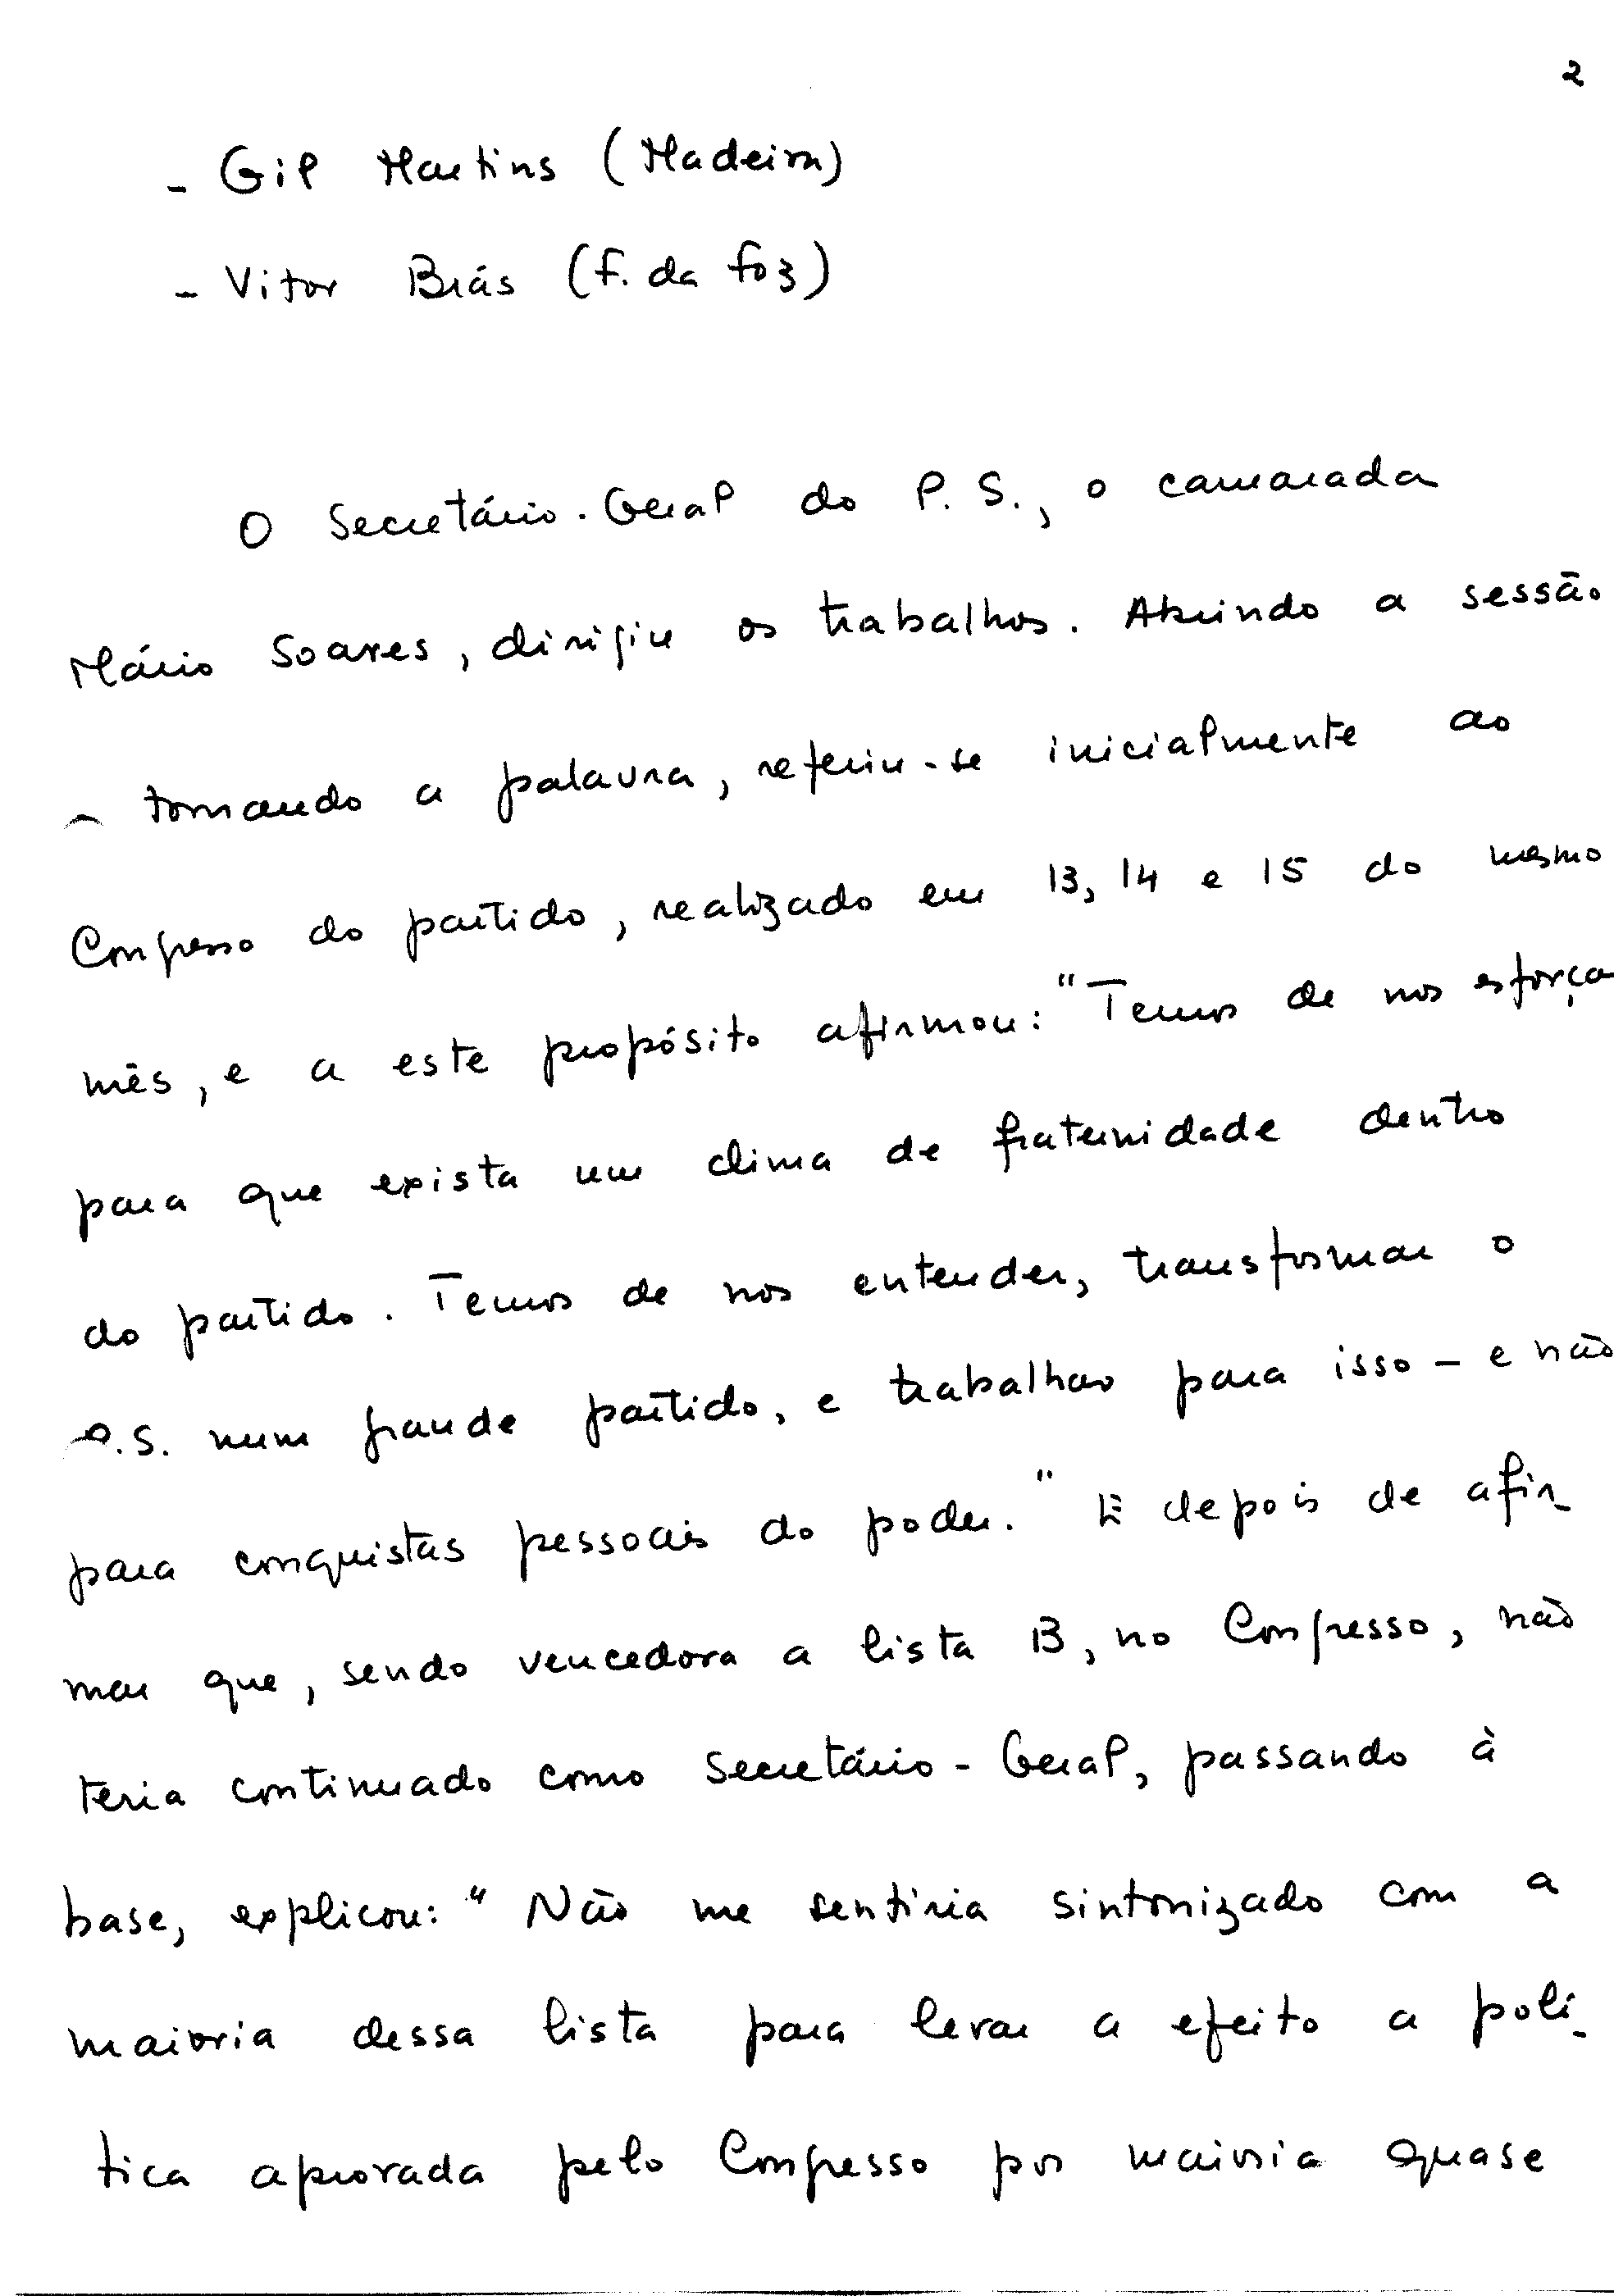 2
- Gil Martins (Madeira)
- Vitor Brás (F. da Foz)
O Secretário-Geral do P. S., o camarada
Mário Soares, dirigiu os trabalhos. Abrindo a sessão
tomando a palavra, referiu-se inicialmente ao
Congresso do partido, realizado em 13, 14 e 15 do mesmo
mês, e a este propósito afirmou: "Temos de nos esforça
para que exista um clima de fraternidade dentro
do partido. Temos de nos entender, transformar o
P.S. num grande partido, e trabalhar para isso - e não
para conquistas pessoais do poder." E depois de afir_
mar que, sendo vencedora a lista B, no Congresso, não
teria continuado como Secretário-Geral, passando à
base, explicou: "Não me sentiria sintonizado com a
maioria dessa lista para levar a efeito a polí_
tica aprovada pelo Congresso por maioria quase